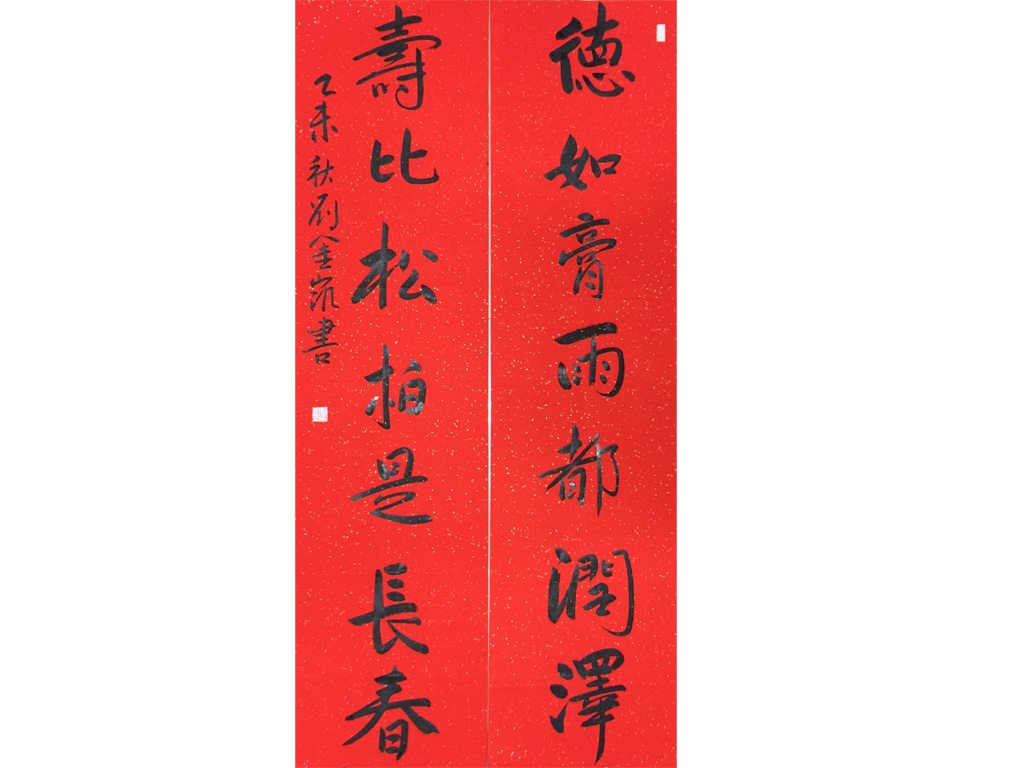 德如膏雨都潤澤
壽比松柏是長春
乙未秋劉金凱書